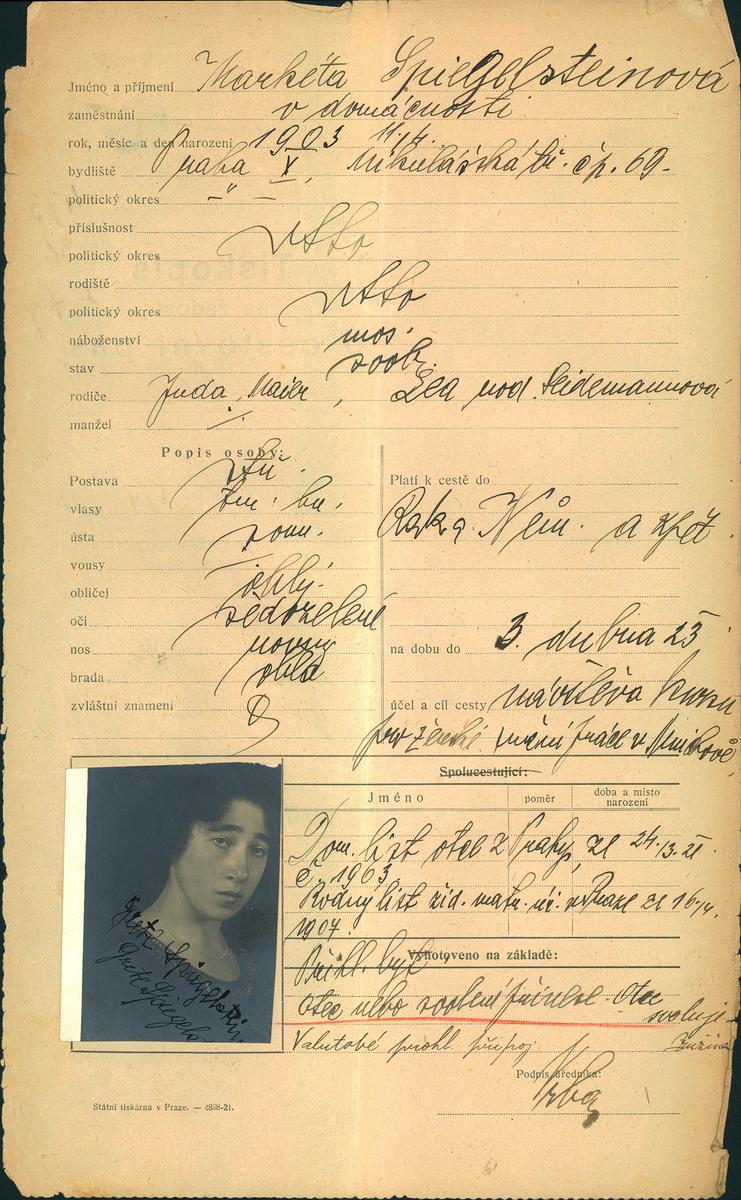 Jméno a příjmení Markéta Spiegelsteinová
zaměstnání v domácnosti
rok, měsíc a den narození 1903 11./4.
bydliště Praha V, Mikulášská tř. čp. 69-
politický okres -"-
příslušnost
politický okres dtto
rodiště
politický okres dtto
náboženství mos.
stav svob.
rodiče Juda Maier, Lea rod. Seidemannová
manžel ./.
Popis osoby:
Postava stř.
vlasy tm. hn.
ústa soum.
vousy —
obličej oblý.
oči šedozelené
nos rovný
brada oblá
zvláštní znamení
Platí k cestě do
Rak. Něm. a zpět.
na dobu do 3. dubna 23
účel a cíl cesty návštěva kursu
pro ženské ruční práce v Mnichově
Spolucestující:
Jméno poměr doba a místo narození
Dom. list otce z Prahy ze 24./3. 21
č. 1963
Rodný list žid. matr. úř. v Praze ze 16./4.
1907.
Vyhotoveno na základě:
Přihl. byt
otec nebo svolení Otec svoluje
Valutové prohl. připoj.
Podpis úředníka:
Grete Spiegelstein
Grete Spiegels
Státní tiskárna v Praze. — 4898-21.